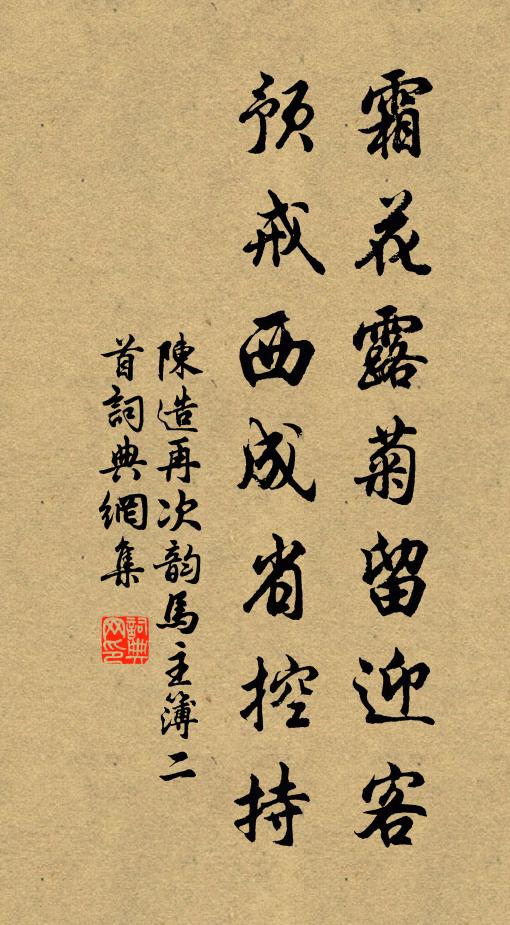 霜花露菊留迎客
預戒西成省控持
陳造再次韵馬主簿二
首詞典網集
詞典网印